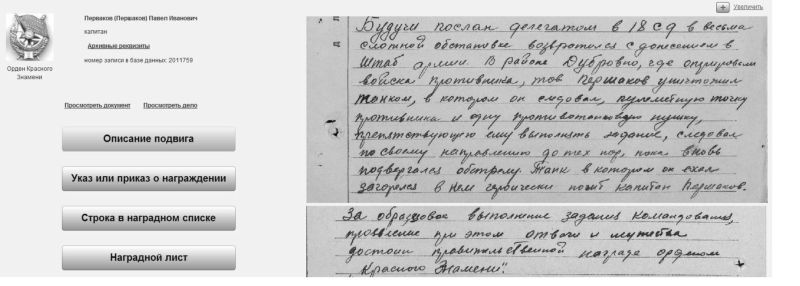 Увеличить
Перваков (Першаков) Павел Иванович
капитан
Архивные реквизиты
номер записи в базе данных: 2011759
Орден Красного
Знамени
Просмотреть документ Просмотреть дело
Описание подвига
Указ или приказ о награждении
Строка в наградном списке
Наградной лист
Будучи послан делегатом в 18 сд в весьма
сложной обстановке возвратился с донесением в
штаб армии. В районе Дубровно, где оперировали
войска противника, тов Першаков уничтожил
танком, в котором он следовал, пулеметную точку
противника и одну противотанковую пушку,
препятствующую ему выполнять задание, следовал
по своему направлению до тех пор, пока вновь
подвергался обстрелу. Танк в котором он ехал
загорелся в нем героически погиб капитан Першаков.
За образцовое выполнение задания командования,
проявление при этом отваги и мужества
достоин правительственной награде орденом
"Красного Знамени".